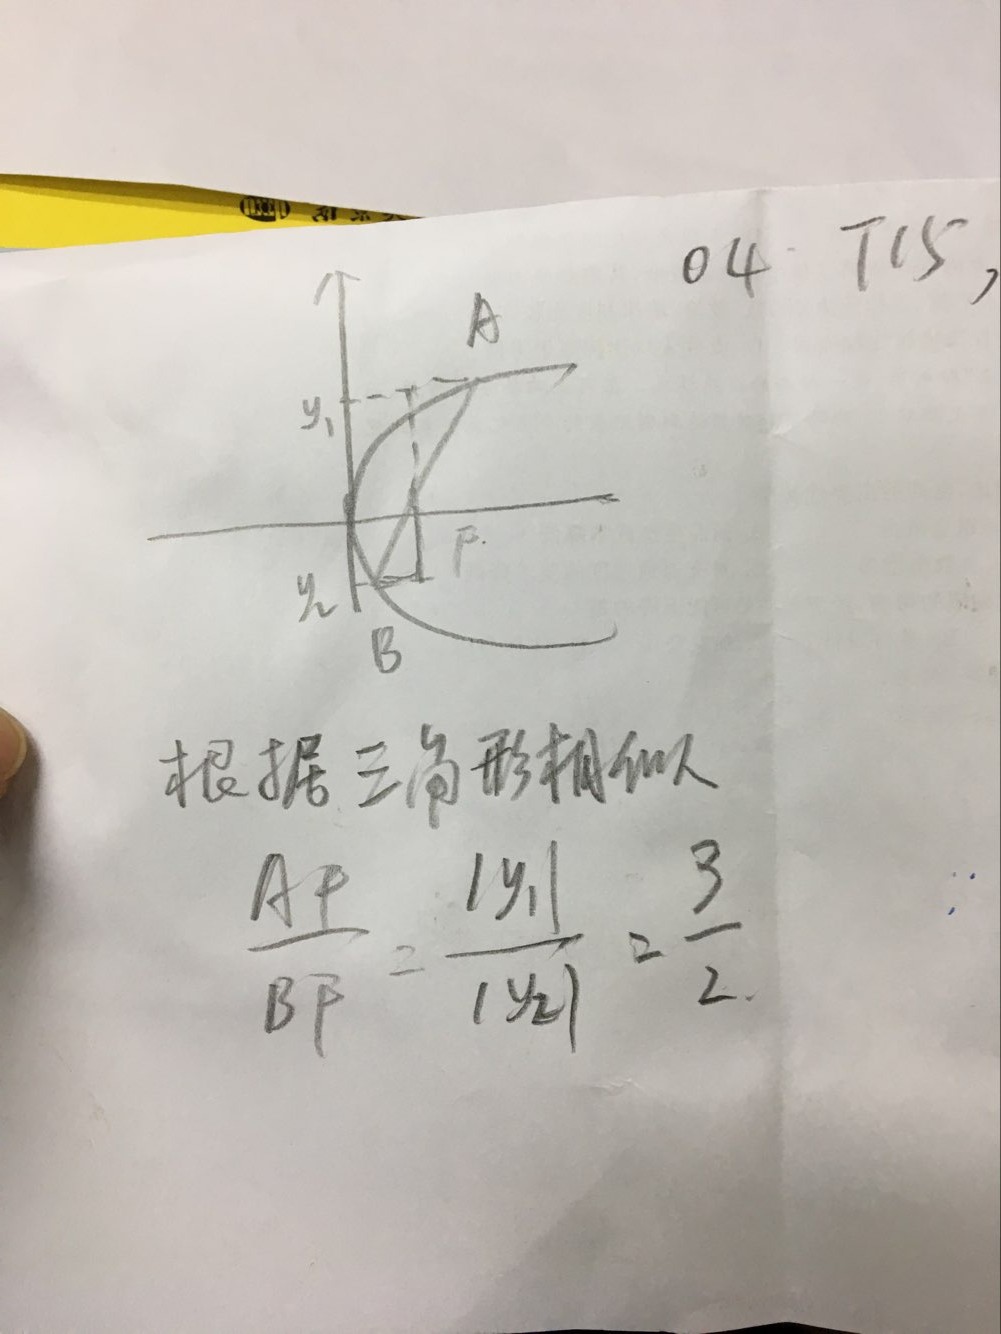 04 T15,
A
y₁
F.
y₂
B
根据三角形相似
AF/BF = |y₁|/|y₂| = 3/2.